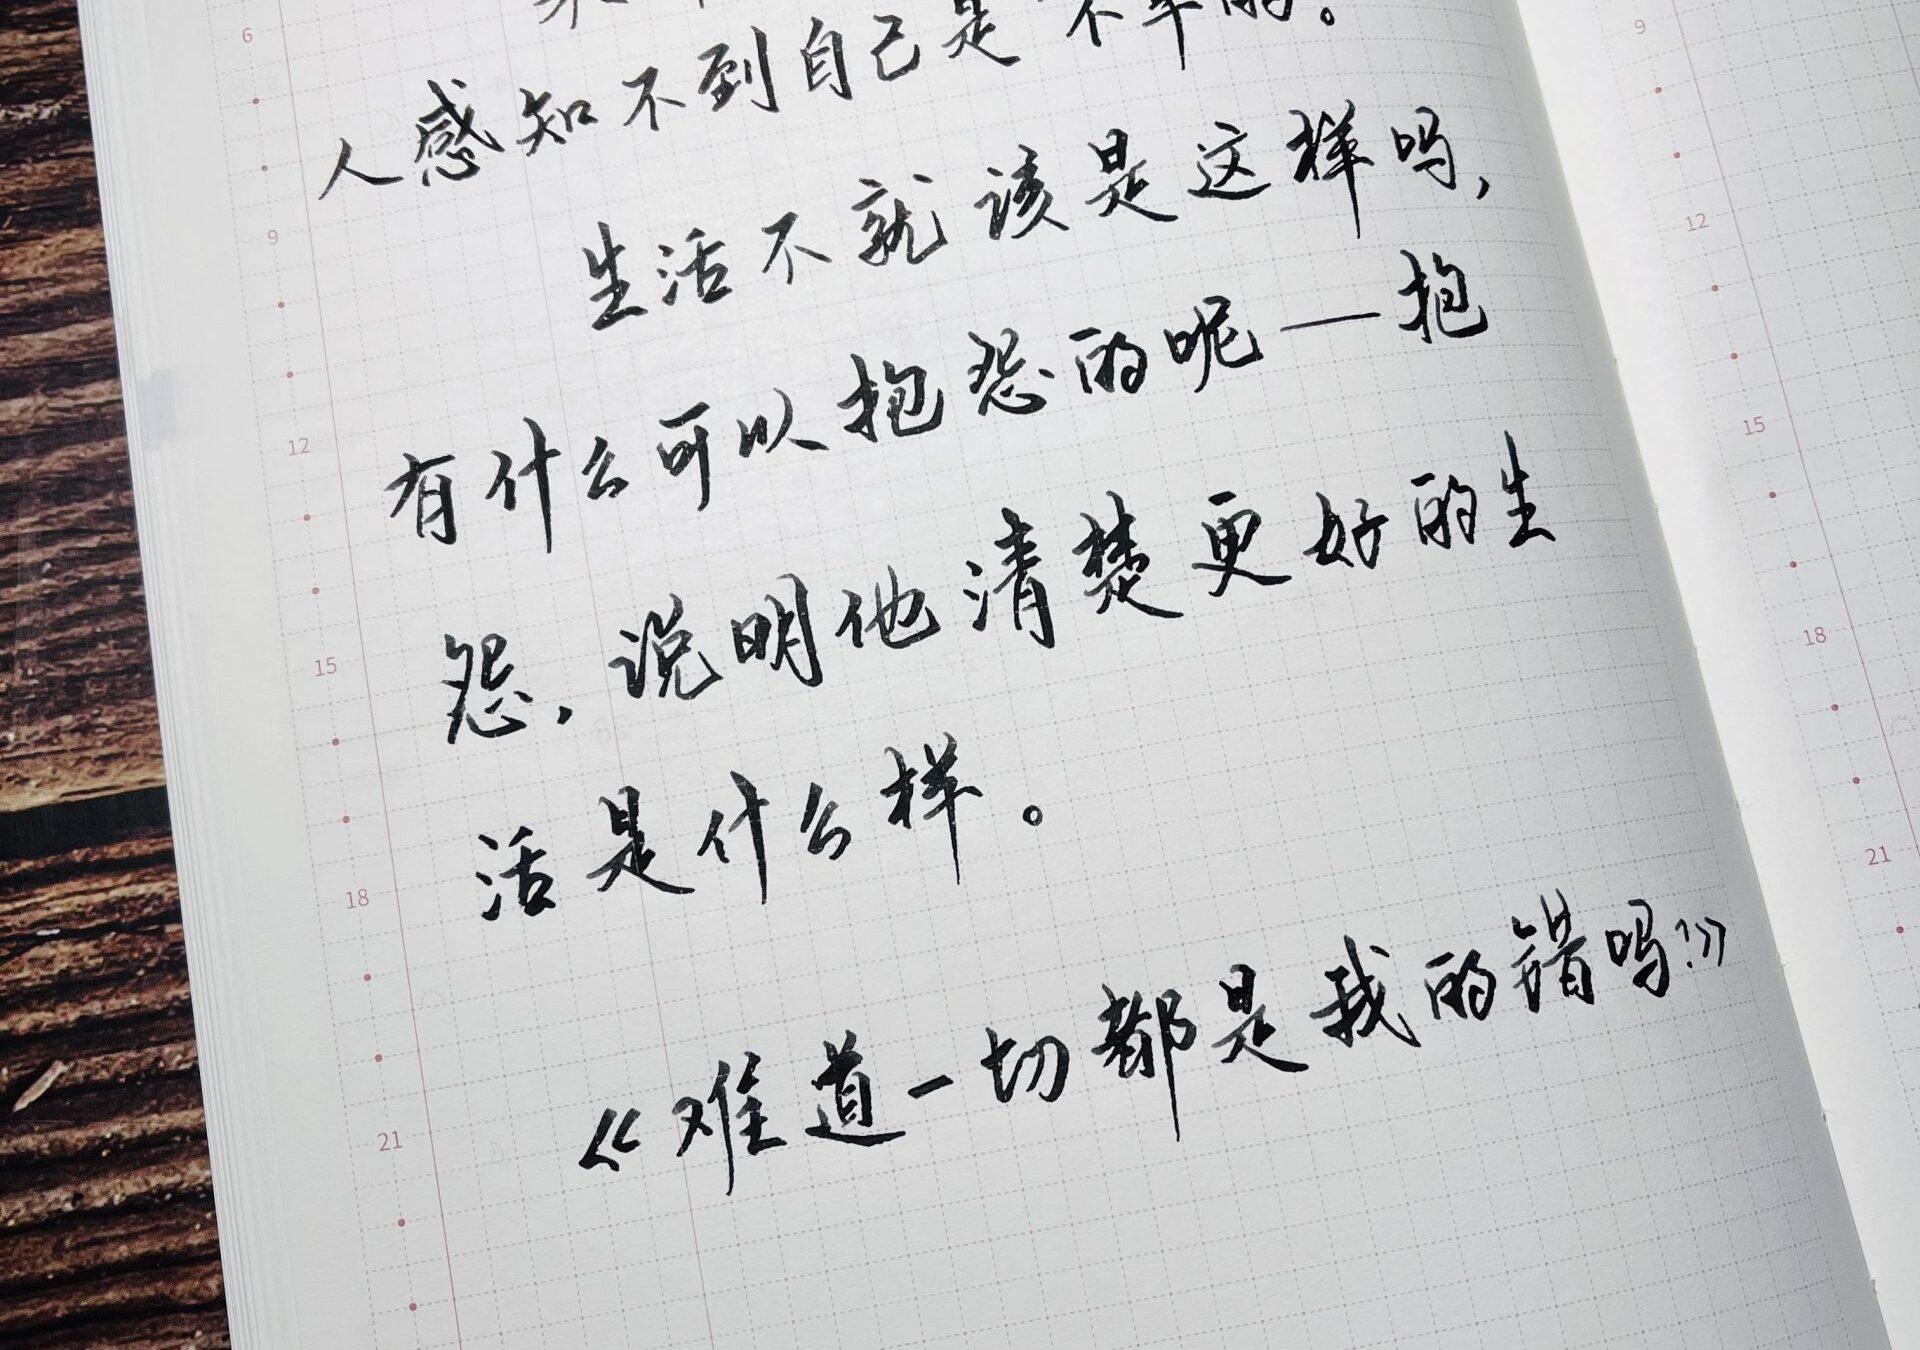 人感知不到自己是不幸的。
生活不就该是这样吗，
有什么可以抱怨的呢—抱
怨，说明他清楚更好的生
活是什么样。
《难道一切都是我的错吗？》
6
9
12
15
18
21
9
12
15
18
21